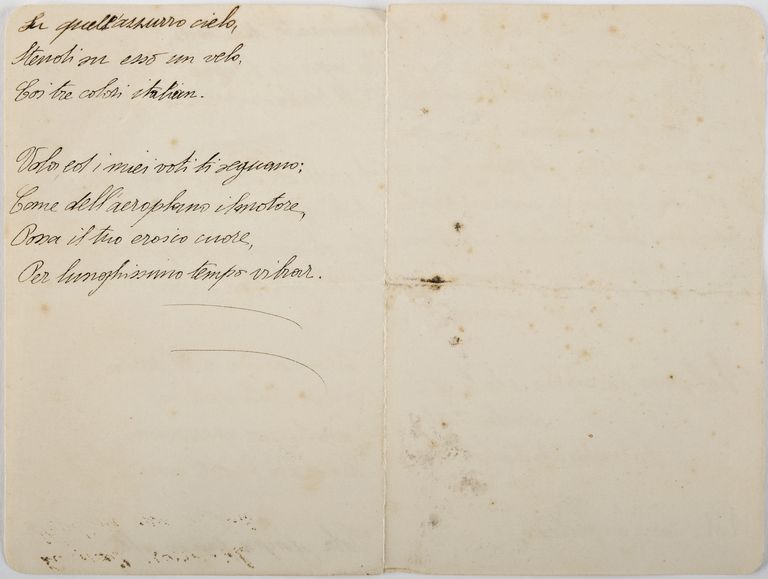 Su quell'azzurro cielo,
Stendi su esso un velo,
Coi tre colori italian.
Vola ed i miei voti ti seguano;
Come dell'aeroplano il motore,
Possa il tuo eroico cuore,
Per lunghissimo tempo vibrar.